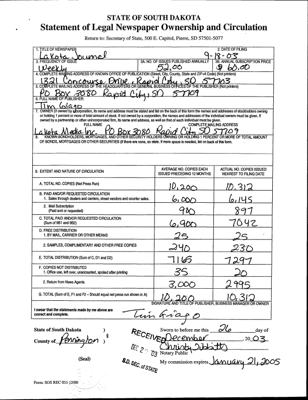 STATE OF SOUTH DAKOTA
Statement of Legal Newspaper Ownership and Circulation
Return to: Secretary of State, 500 E. Capitol, Pierre, SD 57501-5077
1. TITLE OF NEWSPAPER 2. DATE OF FILING
Lakota Journal 9-18-03
3. FREQUENCY OF ISSUE 3A. NO. OF ISSUES PUBLISHED ANNUALLY 3B. ANNUAL SUBSCRIPTION PRICE
Weekly 52.00 $ 60.00
4. COMPLETE MAILING ADDRESS OF KNOWN OFFICE OF PUBLICATION (Street, City, County, State and ZIP+4 Code) (Not printers)
1321 Concourse Drive, Rapid City, SD 57703
5. COMPLETE MAILING ADDRESS OF THE HEADQUARTERS OR GENERAL BUSINESS OFFICES OF THE PUBLISHER (Not printers)
PO Box 3080 Rapid City, SD 57709
6. FULL NAME OF PUBLISHER:
Tim Giago
7. OWNER (If owned by a corporation, its name and address must be stated and list on the back of this form the names and addresses of stockholders owning
or holding 1 percent or more of total amount of stock. If not owned by a corporation, the names and addresses of the individual owners must be given. If
owned by a partnership or other unincorporated firm, its name and address, as well as that of each individual must be given.)
FULL NAME COMPLETE MAILING ADDRESS
Lakota Media Inc. PO Box 3080 Rapid City, SD 57709
8. KNOWN BONDHOLDERS, MORTGAGEES, AND OTHER SECURITY HOLDERS OWNING OR HOLDING 1 PERCENT OR MORE OF TOTAL AMOUNT
OF BONDS, MORTGAGES OR OTHER SECURITIES (If there are none, so state. If more space is needed, list on back of this form.
9. EXTENT AND NATURE OF CIRCULATION AVERAGE NO. COPIES EACH ISSUED PRECEDING 12 MONTHS ACTUAL NO. COPIES ISSUED NEAREST TO FILING DATE
A. TOTAL NO. COPIES (Net Press Run) 10,200 10,312
B. PAID AND/OR REQUESTED CIRCULATION
1. Sales through dealers and carriers, street vendors and counter sales. 6,000 6,145
2. Mail Subscription
(Paid and or requested) 900 897
C. TOTAL PAID AND/OR REQUESTED CIRCULATION
(Sum of 9B1 and 9B2) 6,900 7042
D. FREE DISTRIBUTION
1. BY MAIL, CARRIER OR OTHER MEANS 25 25
2. SAMPLES, COMPLIMENTARY AND OTHER FREE COPIES 240 230
E. TOTAL DISTRIBUTION (Sum of C, D1 and D2) 7165 7297
F. COPIES NOT DISTRIBUTED
1. Office use, left over, unaccounted, spoiled after printing 35 20
2. Return from News Agents 3,000 2995
G. TOTAL (Sum of E, F1 and F2 - Should equal net press run shown in A) 10,200 10,312
SIGNATURE AND TITLE OF PUBLISHER, BUSINESS MANAGER OR OWNER
I swear that the statements made by me above are
correct and complete. Tim Giago
State of South Dakota )
County of Pennington )
(Seal)
Sworn to before me this 26 day of
December, 2003
Notary Public
My commission expires January 21, 2005
RECEIVED
S.D. SEC. OF STATE